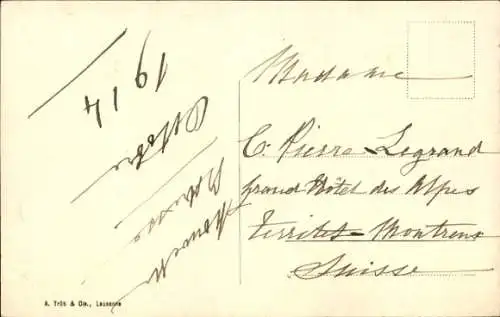 1914
October
Madame
C. Pierre Legrand
Grand Hôtel des Alpes
Territet-Montreux
Suisse
A. Trüb & Cie., Lausanne